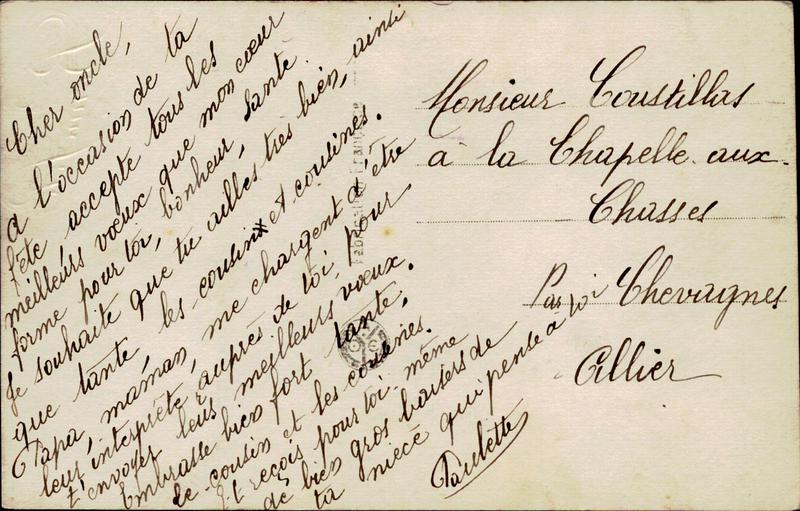 Cher oncle,
A l'occasion de ta
fête accepte tous les
meilleurs vœux que mon cœur
forme pour toi, bonheur, santé
Je souhaite que tu ailles très bien, ainsi
que tante, les cousins et cousines.
Papa, maman, me chargent d'être
leur interprète auprès de toi, pour
t'envoyer leurs meilleurs vœux.
Embrasse bien fort tante,
le cousin et les cousines.
Et reçois pour toi-même
de bien gros baisers de
ta nièce qui pense à toi
Paulette
Monsieur Coustillas
à la Chapelle-aux-
Chasses
Par Chevagnes
Allier